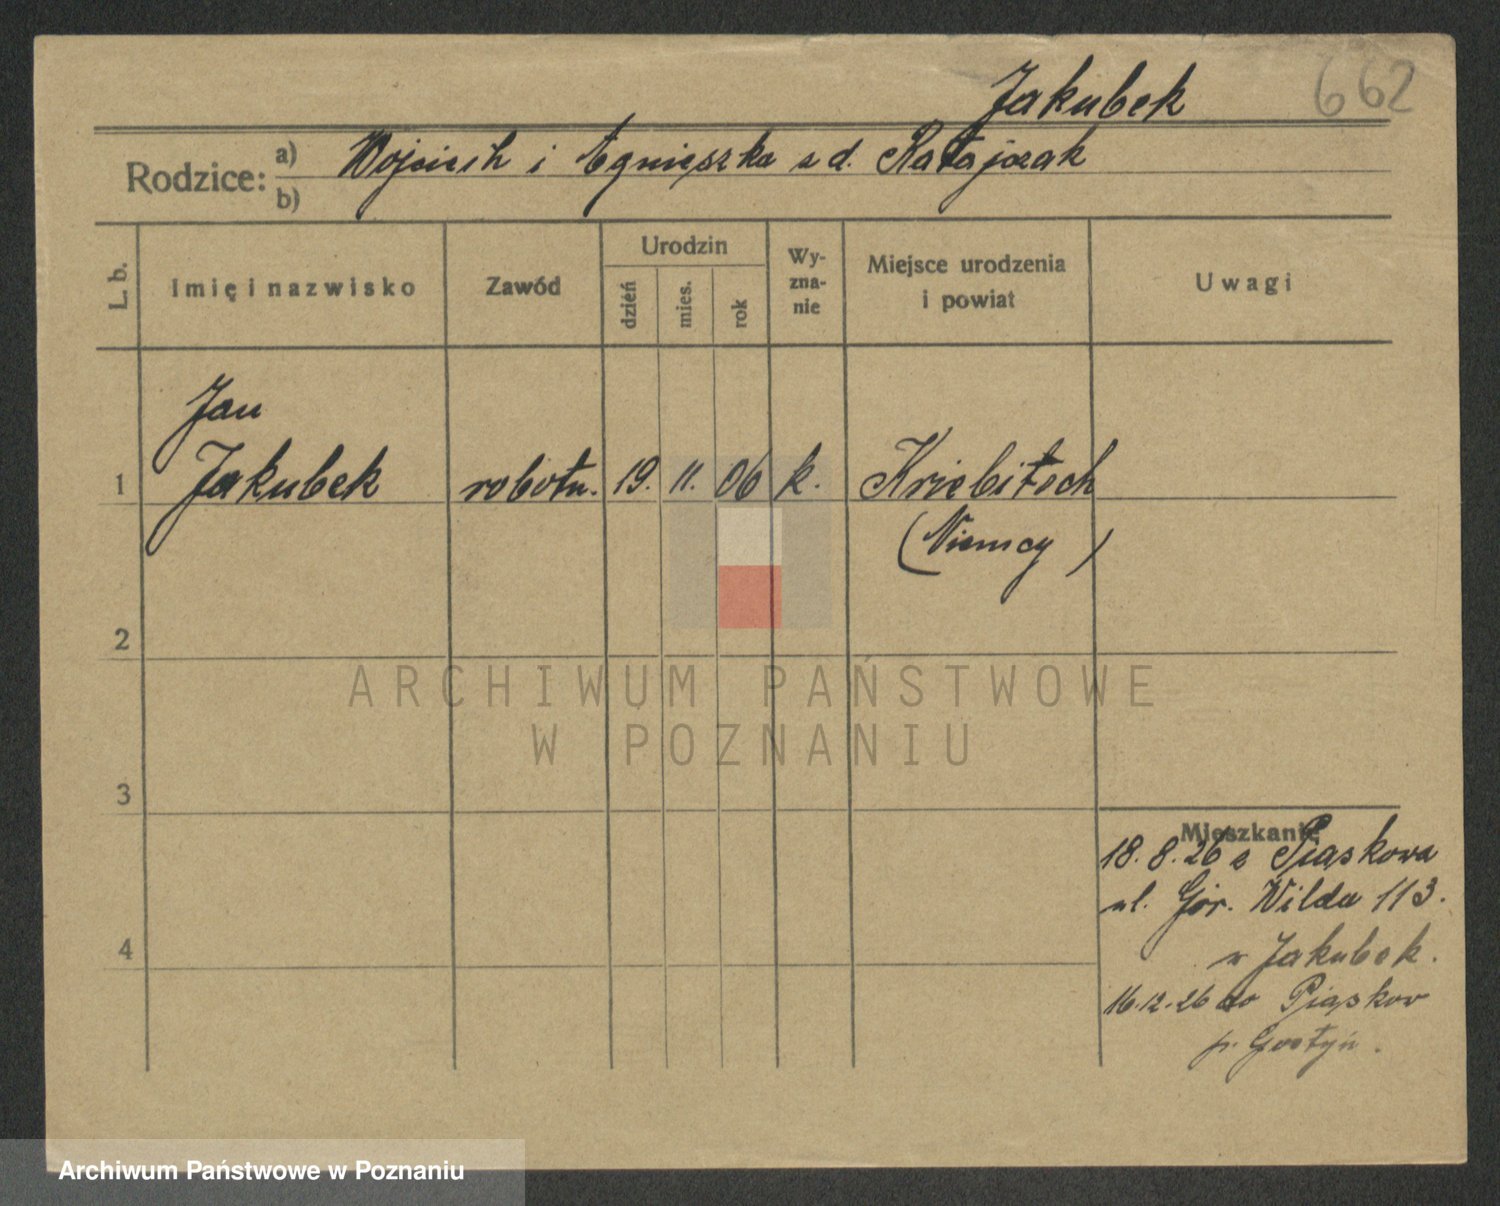 Jakubek
662
Rodzice: a) Wojciech i Agnieszka z d. Ratajczak
b)
L. b.
Imię i nazwisko
Zawód
Urodzin
dzień
mies.
rok
Wy-
zna-
nie
Miejsce urodzenia
i powiat
Uwagi
Jan
1 Jakubek robotn. 19. 11. 06 k. Kriebitsch
(Niemcy)
2
3
4
Mieszkanie
18. 8. 26 z Piaskowa
ul. Gór. Wilda 113.
u Jakubek.
16.12.26 do Piasków
p. Gostyń.
ARCHIWUM PAŃSTWOWE
W POZNANIU
Archiwum Państwowe w Poznaniu